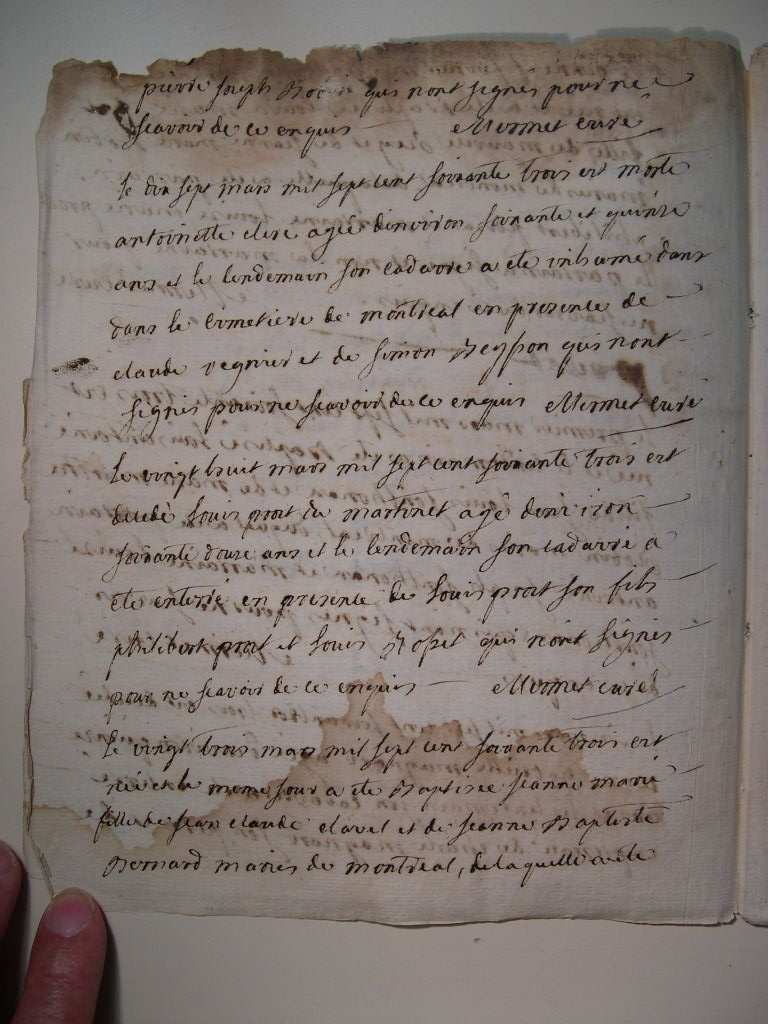 pierre joseph qui nont signes pour ne
scavoir de ce enquis Mermet curé
le dix sept mars mil sept cent soixante trois est morte
antoinette clerc agée denviron soixante et quinze
ans et le lendemain son cadavre a ete inhumé dans
dans le cimetiere de montreal en presence de
claude vegnier et de simon qui nont
signés pour ne scavoir de ce enquis Mermet curé
le vingt huit mars mil sept cent soixante trois est
decedé louis prost du martinet agé denviron
soixante douze ans et le lendemain son cadavre a
ete enterré en presence de louis prost son fils
philibert prost et louis qui nont signés
pour ne scavoir de ce enquis Mermet curé
le vingt trois mars mil sept cent soixante trois est
née et le meme jour a ete Baptisée jeanne marie
fille de jean claude clavel et de jeanne Baptiste
Bernard mariés de montreal, de laquelle a ete